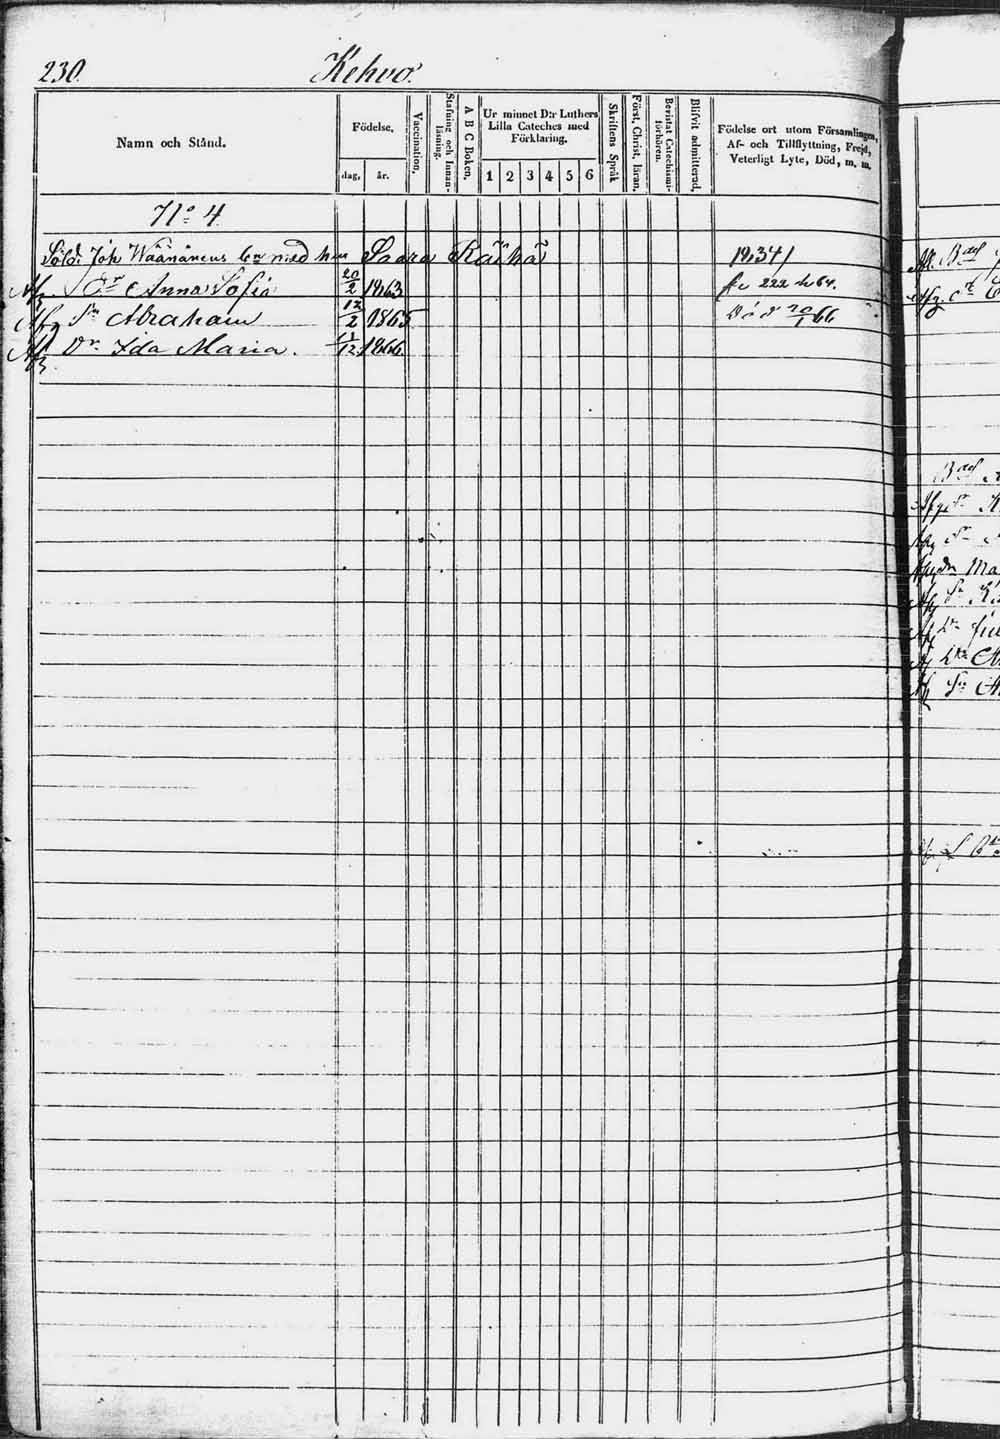 230.
Kehvo.
Namn och Stånd.
Födelse,
dag, år.
Vaccination.
Stafning och Innan-läsning.
A B C Boken.
Ur minnet D:r Luthers
Lilla Cateches med
Förklaring.
1 2 3 4 5 6
Skriftens Språk
Först. Christ. läran.
Bevistat Catechismi-förhören.
Blifvit admitterad.
Födelse ort utom Församlingen,
Af- och Tillflyttning, Frejd,
Veterligt Lyte, Död, m. m.
No 4.
Sold. Joh Wäänänens med Saara Räihä 1834
Dr Anna Sofia 20/2 1863 222 64.
Afg Sn Abraham 12/2 1865 Död 20/1 66
Afg Dr Ida Maria. 1866